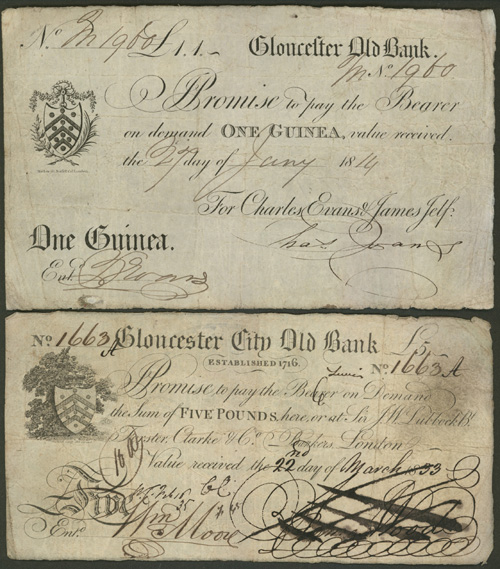 No. M 1960 £1.1.- Gloucester Old Bank.
M No. 1960
I Promise to pay the Bearer
on demand ONE GUINEA, value received.
the 27 day of Jany 1814
For Charles Evans & James Jelf:
One Guinea.
Chas. Evans
Entd. Evans
No 1663 A Gloucester City Old Bank £5
ESTABLISHED 1716.
No 1663 A
I Promise to pay the Bearer on Demand
the Sum of FIVE POUNDS, here, or at Sir J. W. Lubbock Bt.
Forster, Clarke & Co. Bankers London
Value received the 22nd day of March 1833
Five
Entd. Wm Moore